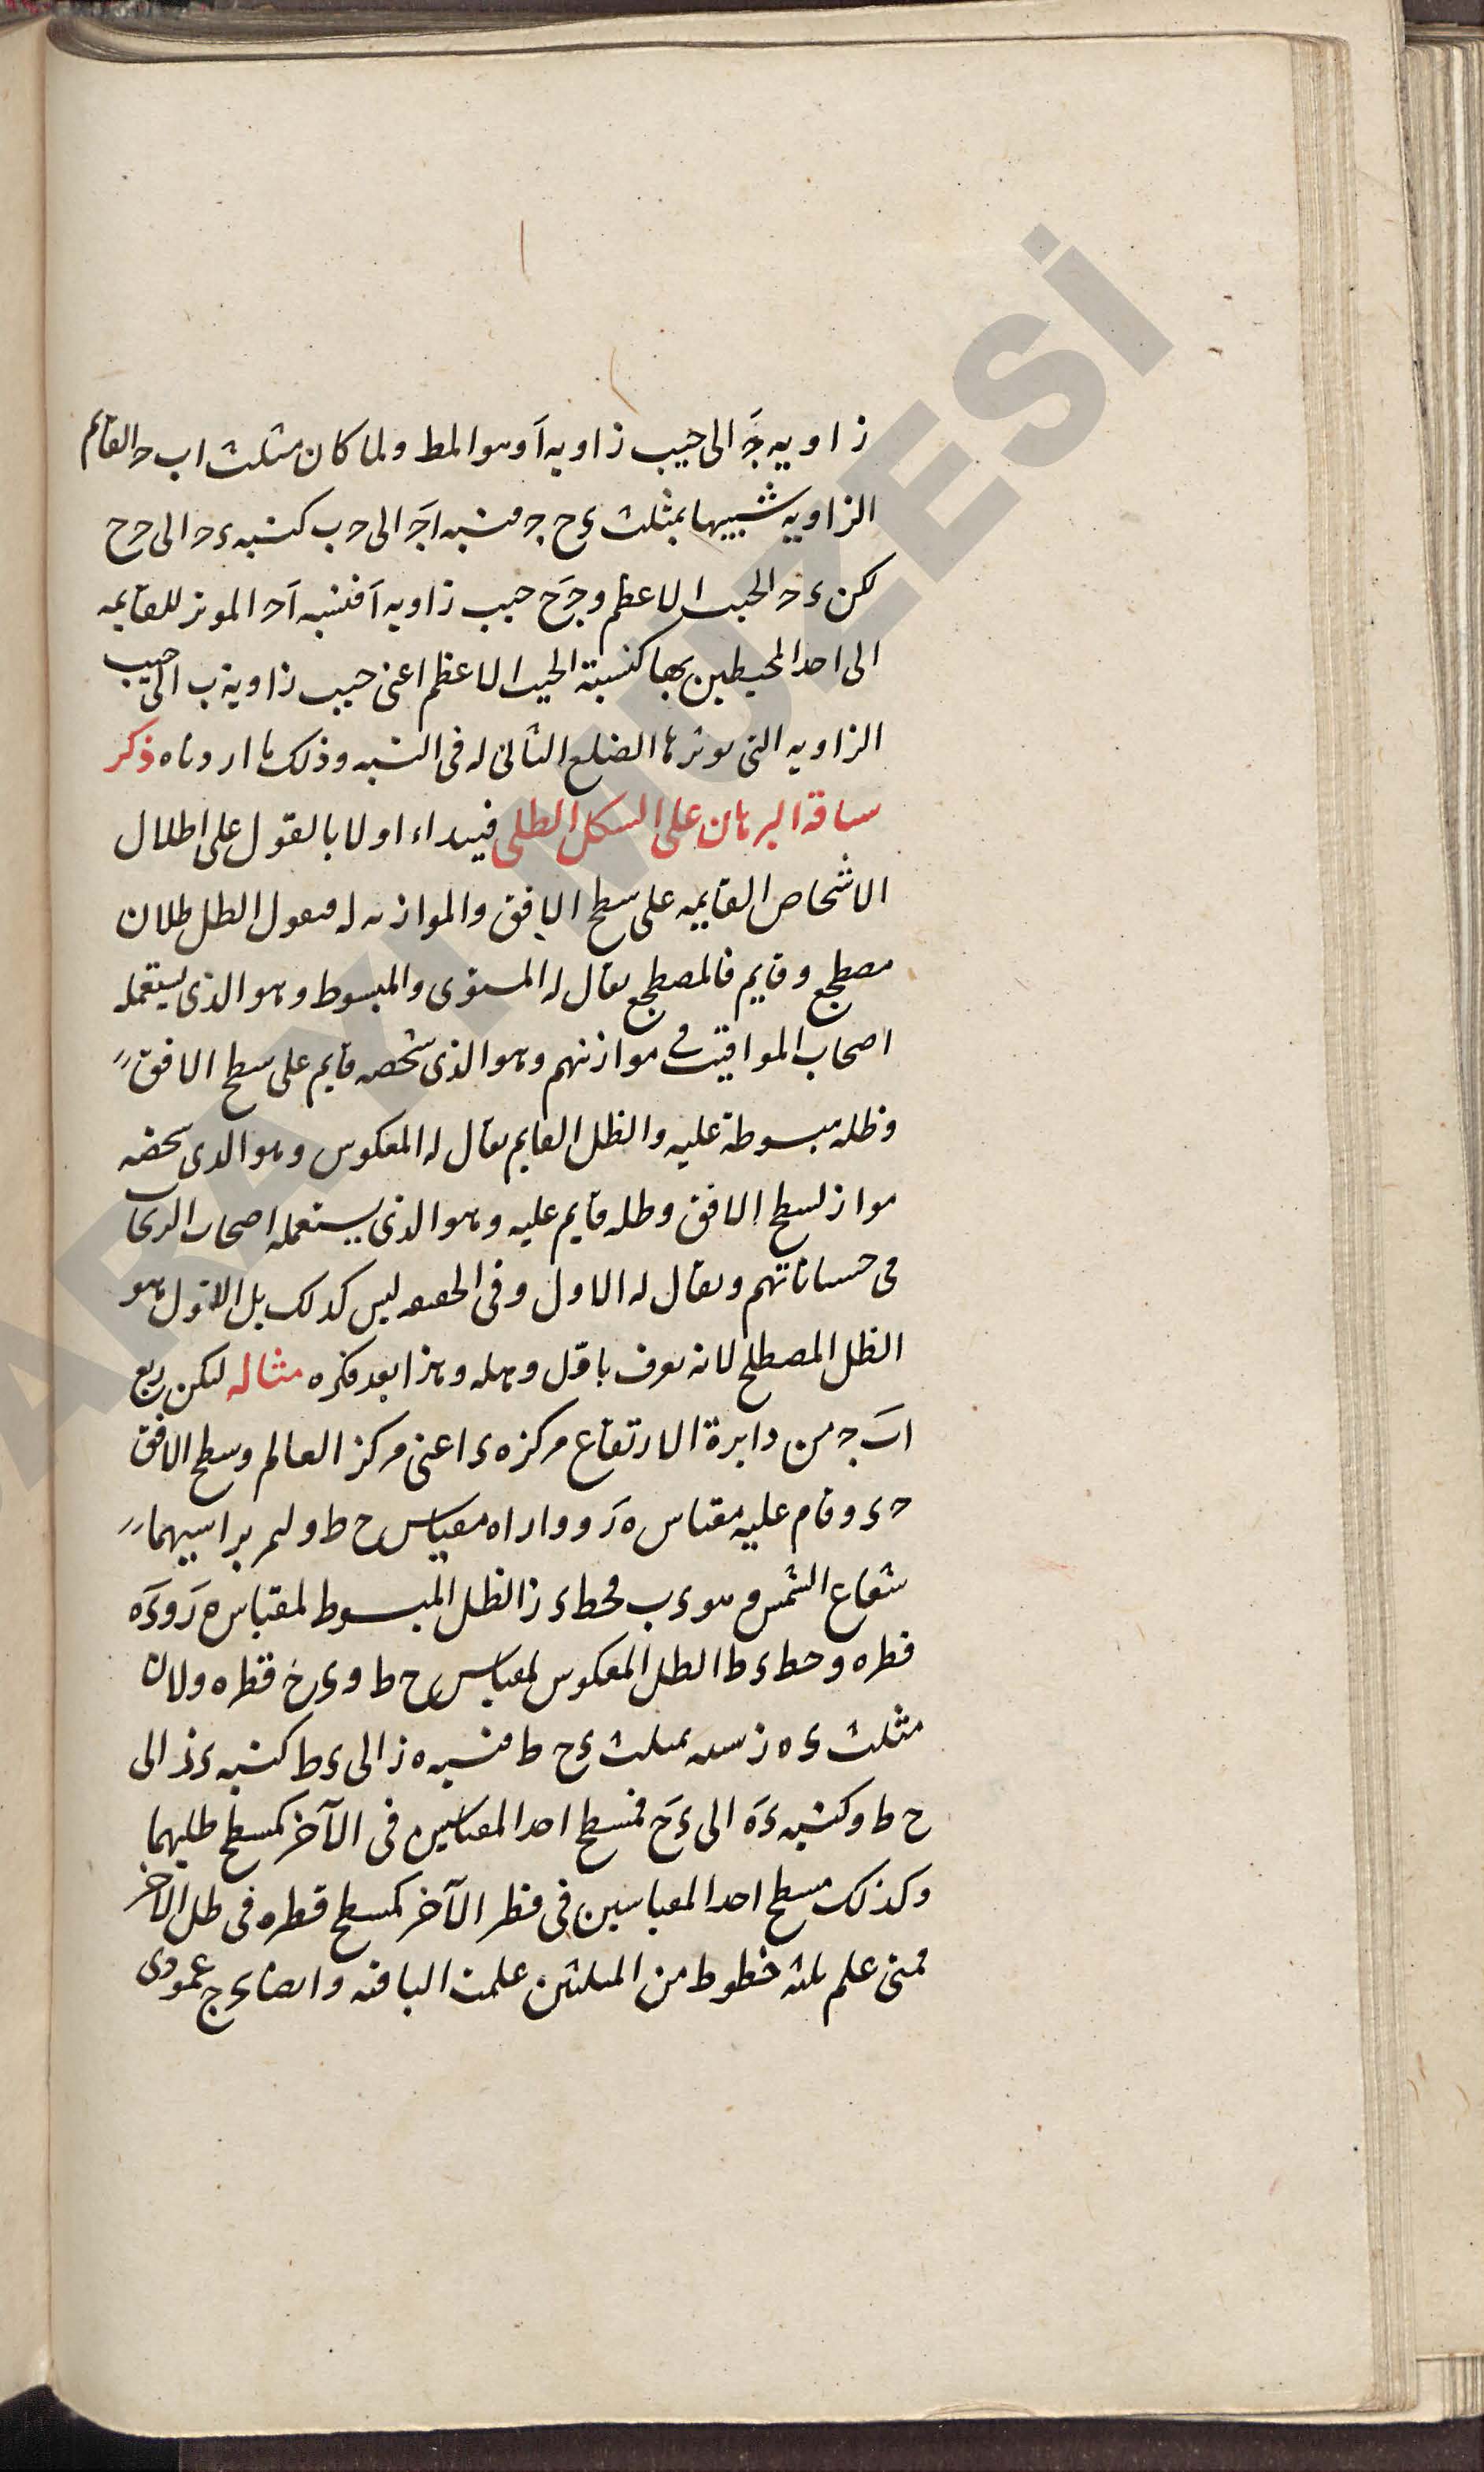 زاويه جَ الى جيب زاويه آ وهو المط ولما كان مثلث اب حـ القايم
الزاويه شبيها بمثلث ءح جـ فنسبه اجَ الى حـ ب كنسبه ءحـ الى حـ ح
لكن ء حـ الجيب الاعظم وجَ ح جيب زاويه آ فنسبه آحـ الموتر للقايمه
الى احد المحيطين بها كنسبة الجيب الاعظم اعنى جيب زاوية ب الى جيب
الزاويه التى يوترها الضلع التالى له فى النسبه وذلك ما اردناه ذكر
سياقة البرهان على الشكل الظلى فيبداء اولا بالقول على اظلال
الاشخاص القايمه على سطح الافق والموازيه له فنقول الظل ظلان
مضطجع وقايم فالمضطجع يقال له المستوى والمبسوط وهو الذى يستعمله
اصحاب المواقيت فى موازينهم وهو الذى شخصه قايم على سطح الافق
وظله مبسوطة عليه والظل القايم يقال له المعكوس وهو الذى شخصه
مواز لسطح الافق وظله قايم عليه وهو الذى يستعمله اصحاب الزيجات
فى حساباتهم ويقال له الاول وفى الحقيقه ليس كذلك بل الاول هو
الظل المصطلح لانه يعرف باول وهله وهذا بعد فكره مثاله ليكن ربع
ابَ جـ من دايرة الارتفاع مركزه ء اعنى مركز العالم وسطح الافق
حـ ء وقام عليه مقياس ه زَ ووازاه مقياس ح ط وليمر براسيهما
شعاع الشمس وهو ء ب فخط ء ز الظل المبسوط لمقياس ه زَ و ءَ ه
قطره وخط ء ط الظل المعكوس لمقياس ح ط و ء ح قطره ولان
مثلث ء ه ز شبيه بمثلث ء ح ط فنسبه ه ز الى ء ط كنسبه ء ز الى
ح ط وكنسبه ءَ ه الى ءَ ح فمسطح احد المقياسين فى الآخر كمسطح ظليهما
وكذلك مسطح احد المقياسين فى قطر الآخر كمسطح قطره فى ظل الآخر
فمتى علم ثلثه خطوط من المثلثين علمت الباقيه وايضا ء ج عمودى